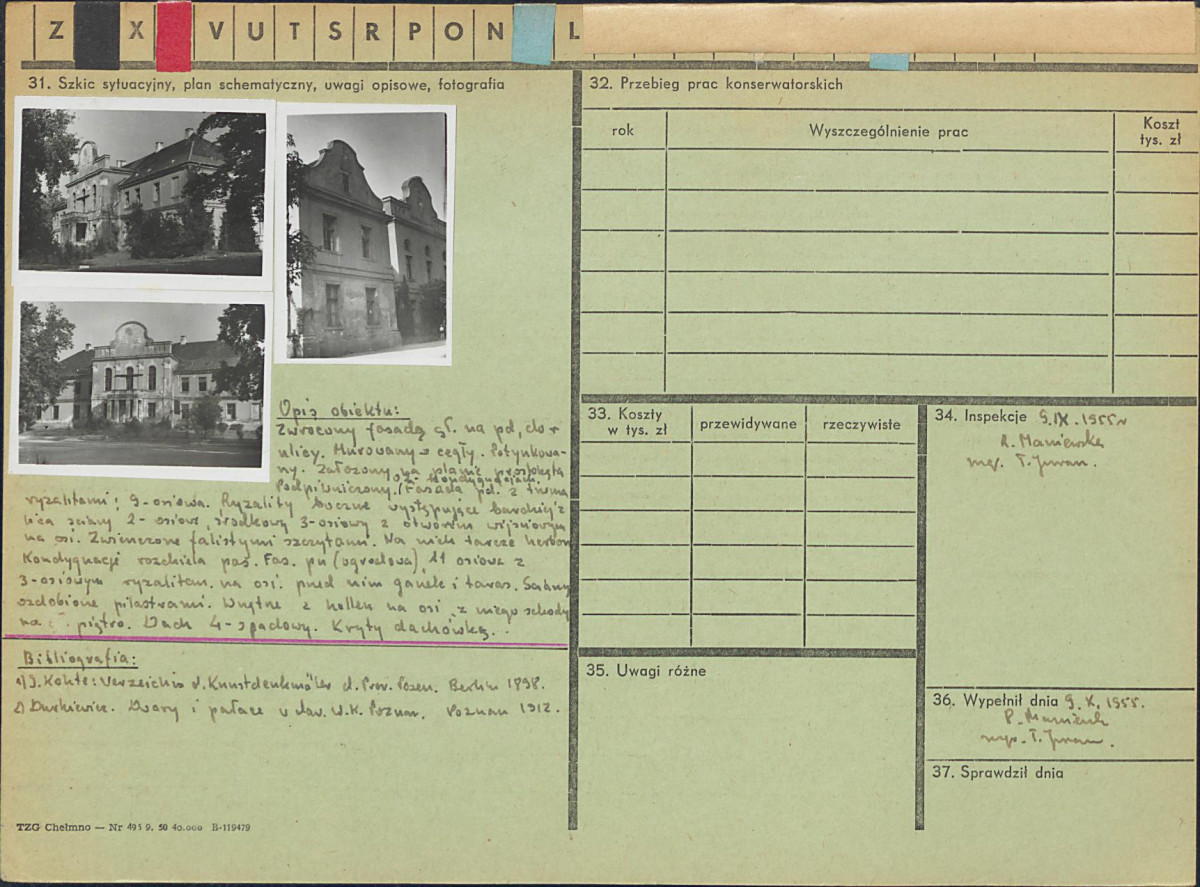 Z X V U T S R P O N L
31. Szkic sytuacyjny, plan schematyczny, uwagi opisowe, fotografia
Opis obiektu:
Zwrócony fasadą gł. na pd, do
ulicy. Murowany z cegły. Potynkowa-
ny. Założony na planie prostokąta
Podpiwniczony. Fasada pd. z trzema
ryzalitami; 9-osiowa. Ryzality boczne występujące bardziej z
lica ściany 2-osiowe, środkowy 3-osiowy z otworem wejściowym
na osi. Zwieńczone falistymi szczytami. Na nich tarcze herbow
Kondygnacje rozdziela pas. Fas. pn (ogrodowa), 11 osiowa z
3-osiowym ryzalitem na osi. przed nim ganek i taras. Ściany
ozdobione pilastrami. Wnętrze z hollem na osi, z niego schody
na piętro. Dach 4-spadowy. Kryty dachówką.
Bibliografia:
1) J. Kohte: Verzeichnis d. Kunstdenkmäler d. Prov. Posen. Berlin 1898.
2) Durkiewicz. Dwory i pałace w W. K. Poznań. Poznań 1912.
TZG Chełmno — Nr 495 9. 50 40.000 B-119479
32. Przebieg prac konserwatorskich
rok Wyszczególnienie prac Koszt
tys. zł
33. Koszty
w tys. zł przewidywane rzeczywiste
34. Inspekcje 9.IX.1955r
R. Maniewska
mgr. T.
35. Uwagi różne
36. Wypełnił dnia 9.X.1955.
mgr. T.
37. Sprawdził dnia